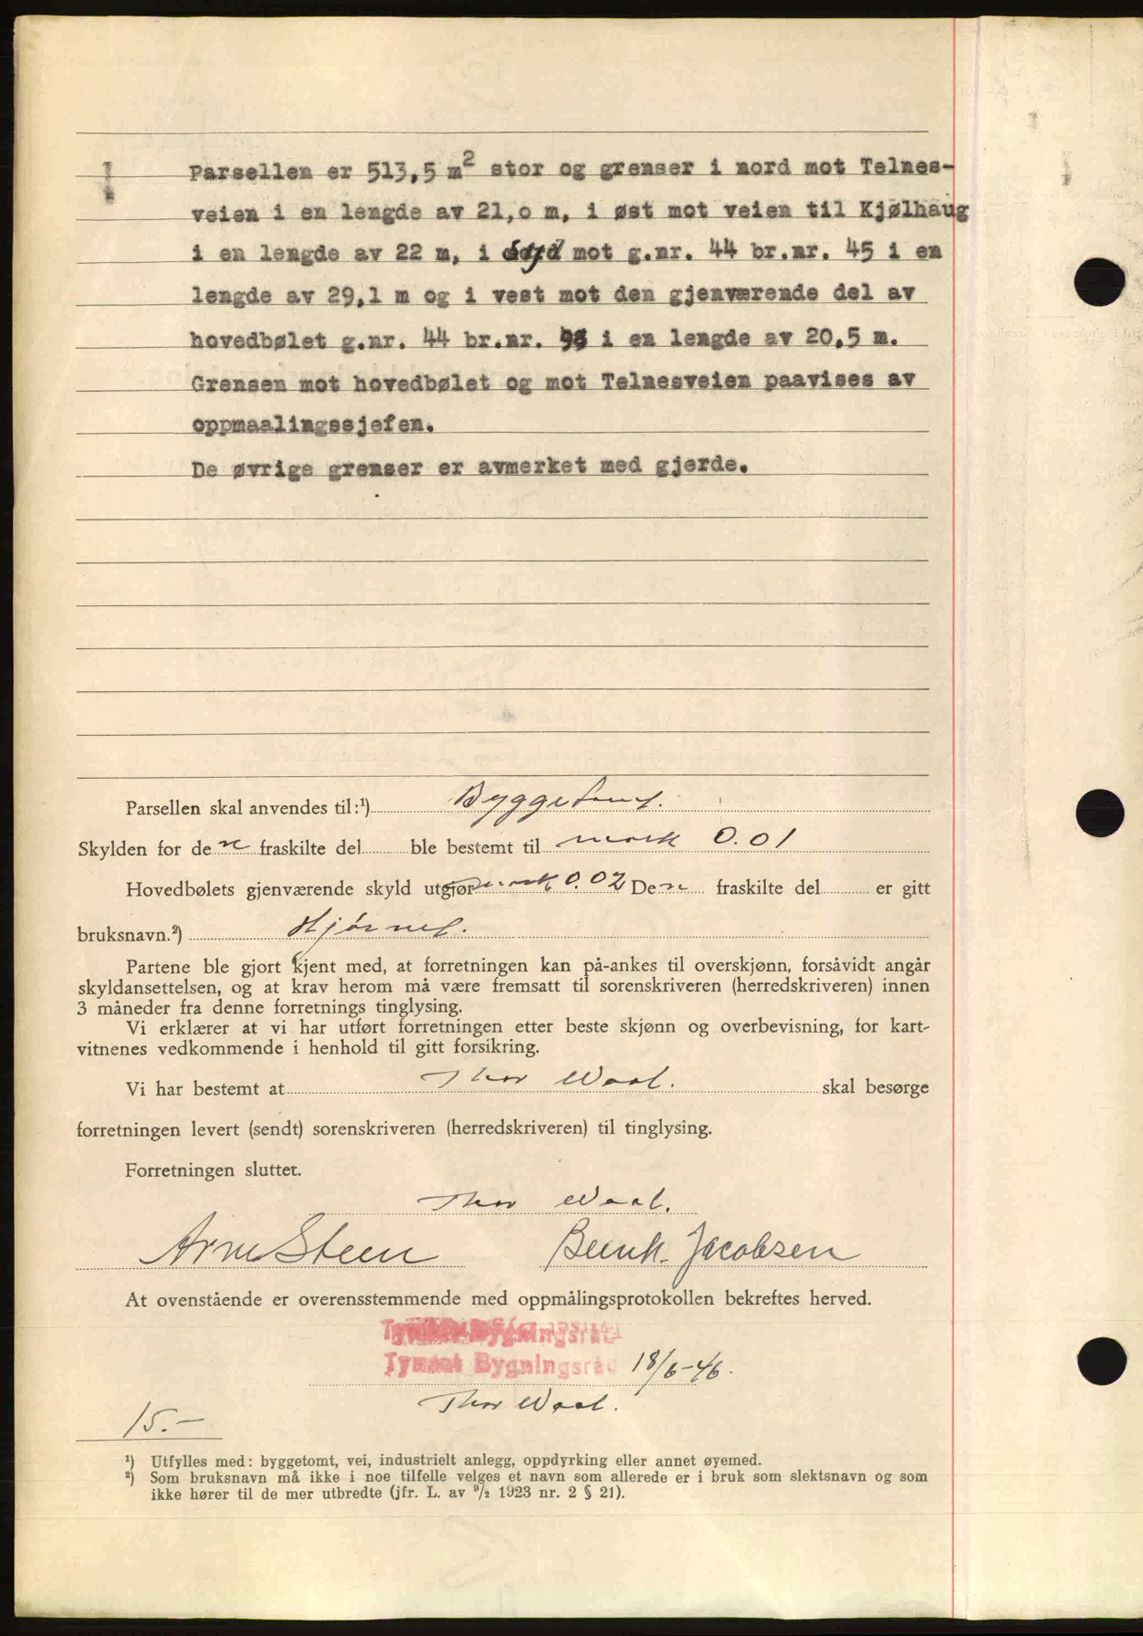 Parsellen er 513,5 m² stor og grenser i nord mot Telnes-
veien i en lengde av 21,0 m, i øst mot veien til Kjølhaug
i en lengde av 22 m, i syd mot g.nr. 44 br.nr. 45 i en
lengde av 29,1 m og i vest mot den gjenværende del av
hovedbølet g.nr. 44 br.nr. i en lengde av 20,5 m.
Grensen mot hovedbølet og mot Telnesveien paavises av
oppmaalingssjefen.
De øvrige grenser er avmerket med gjerde.
Parsellen skal anvendes til:¹) Byggetomt.
Skylden for den fraskilte del ble bestemt til mark 0.01
Hovedbølets gjenværende skyld utgjør mark 0.02 Den fraskilte del er gitt
bruksnavn.²) Hjørnet.
Partene ble gjort kjent med, at forretningen kan på-ankes til overskjønn, forsåvidt angår
skyldansettelsen, og at krav herom må være fremsatt til sorenskriveren (herredskriveren) innen
3 måneder fra denne forretnings tinglysing.
Vi erklærer at vi har utført forretningen etter beste skjønn og overbevisning, for kart-
vitnenes vedkommende i henhold til gitt forsikring.
Vi har bestemt at Thor Waal. skal besørge
forretningen levert (sendt) sorenskriveren (herredskriveren) til tinglysing.
Forretningen sluttet.
Thor Waal.
Arne Steen Bernh. Jacobsen
At ovenstående er overensstemmende med oppmålingsprotokollen bekreftes herved.
Tynset Bygningsråd
Tynset Bygningsråd 18/6-46.
Thor Waal.
15.-
¹) Utfylles med: byggetomt, vei, industrielt anlegg, oppdyrking eller annet øyemed.
²) Som bruksnavn må ikke i noe tilfelle velges et navn som allerede er i bruk som slektsnavn og som
ikke hører til de mer utbredte (jfr. L. av ⁹/₂ 1923 nr. 2 § 21).